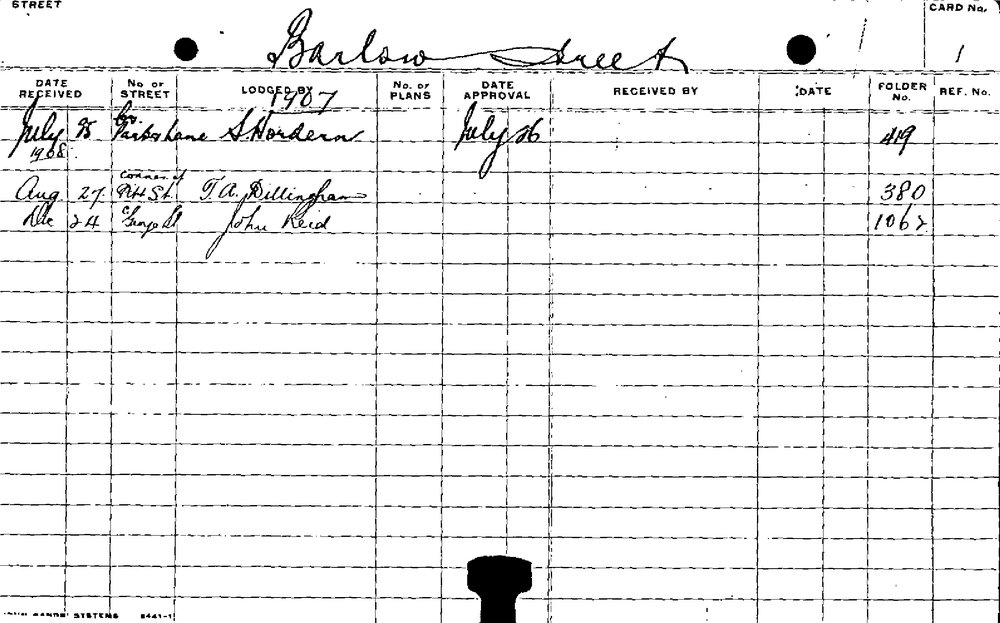 STREET
CARD No.
Barlow Street
1
DATE RECEIVED No OF STREET LODGED BY No. OF PLANS DATE APPROVAL RECEIVED BY DATE FOLDER No. REF. No.
1907
July 25 Cor. Parker Lane S. Hordern July 26 419
1908
Aug 27 Corner of Pitt St. T. A. Dillingham 380
Dec 24 C George St John Reid 1062
SYSTEMS 8441-1